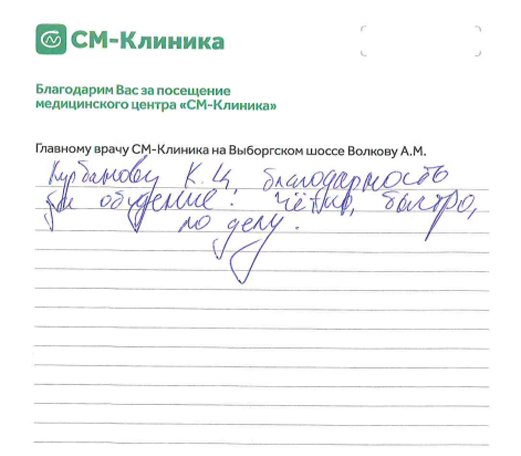 СМ-Клиника
Благодарим Вас за посещение
медицинского центра «СМ-Клиника»
Главному врачу СМ-Клиника на Выборгском шоссе Волкову А.М.
Курбанову К.Ц, благодарность
за общение. Чётко, быстро,
по делу.